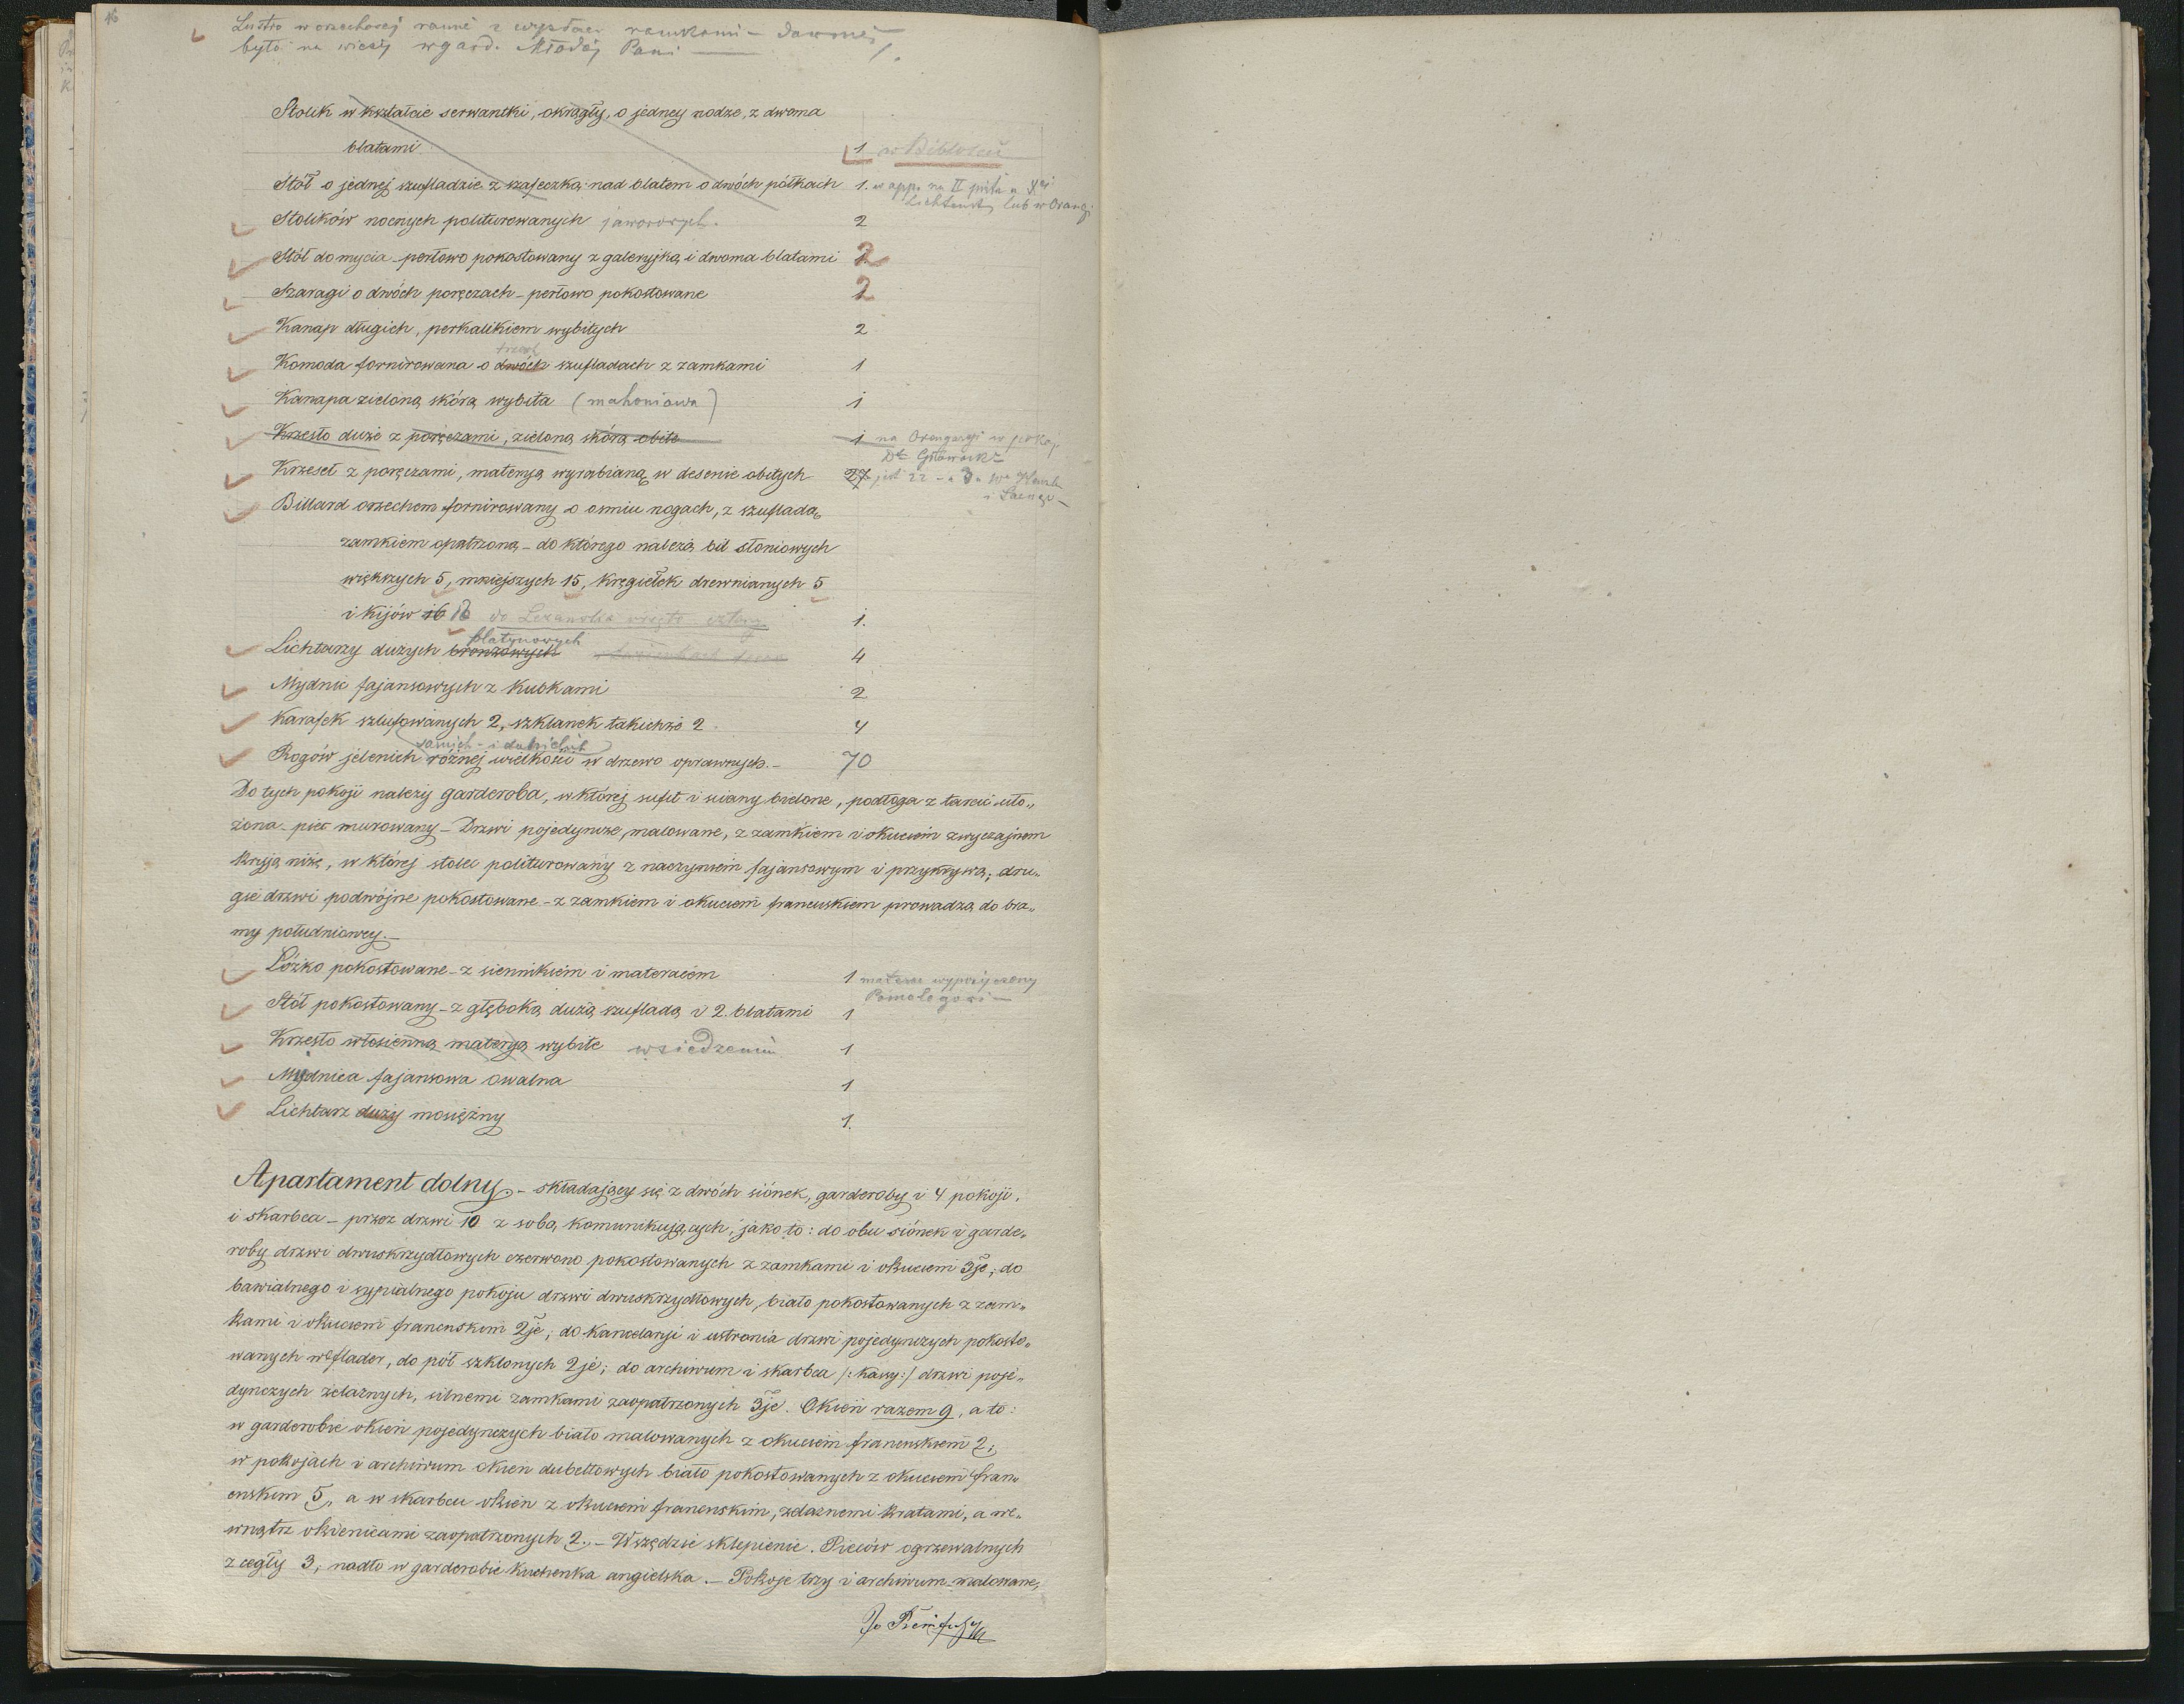 16
Lustro w orzechowej ramie z wyzłac. ramkami – dawniej
było na wieży w gard. Młodej Pani
Stolik w kształcie serwantki, okrągły, o jedney nodze, z dwoma
blatami 1 w Bibliotece
Stół o jednej szufladzie z szafeczką nad blatem o dwóch półkach 1. w app. na II
lub w Oranż
Stolików nocnych politurowanych jaworowych. 2
Stół do mycia – perłowo pokostowany z galeryjką i dwoma blatami 2
Szaragi o dwóch poręczach – perłowo pokostowane 2
Kanap długich, perkalikiem wybitych 2
trzech
Komoda fornirowana o dwóch szufladach z zamkami 1
Kanapa zieloną skórą wybita (mahoniowa) 1
Krzesło duże z poręczami, zieloną skórą obite 1 na Oranżeryi w pokoj.
Krzeseł z poręczami, materyą wyrabianą w desenie obitych 27 jest 22 – a 3
Billard orzechem fornirowany o ośmiu nogach, z szufladą
zamkiem opatrzoną – do którego należą bil słoniowych
większych 5, mniejszych 15, kręgiełek drewnianych 5
i kijów 16 12 do wzięto cztery 1.
platynowych
Lichtarzy dużych bronzowych 4
Mydnic fajansowych z kubkami 2
Karafek szlufowanych 2, szklanek takichże 2 4
sarnich – i danielich
Rogów jelenich różnej wielkości w drzewo oprawnych. – 70
Do tych pokoji należy garderoba, w której sufit i ściany bielone, podłoga z tarcic uło„
żona – piec murowany – Drzwi pojedyncze, malowane, z zamkiem i okuciem zwyczajnem
kryją niżę, w której stolec politurowany z naczyniem fajansowym i przykrywą; dru„
gie drzwi podwójne pokostowane – z zamkiem i okuciem francuskiem prowadzą do bra„
my południowey. –
Łóżko pokostowane – z siennikiem i materacem 1 materac wypożyczony
Pomologowi –
Stół pokostowany – z głęboką dużą szufladą i 2 blatami 1
Krzesło włosienną materyą wybite w siedzeniu 1
Mydnica fajansowa owalna 1
Lichtarz duży mosiężny 1.
Apartament dolny. – składający się z dwóch siónek, garderoby i 4 pokoji,
i skarbca – przez drzwi 10 z sobą komunikujących, jako to: do obu siónek i garde„
roby drzwi dwuskrzydłowych czerwono pokostowanych z zamkami i okuciem 3je; do
bawialnego i sypialnego pokoju drzwi dwuskrzydłowych, biało pokostowanych z zam„
kami i okuciem francuskim 2je; do kancelaryi i ustronia drzwi pojedynczych pokosto„
wanych w flader, do pół szklonych 2je; do archiwum i skarbca /: kasy :/ drzwi poje„
dynczych żelaznych, silnemi zamkami zaopatrzonych 3je. Okien razem 9, a to:
w garderobie okien pojedynczych biało malowanych z okuciem francuskiem 2;
w pokojach i archiwum okien dubeltowych biało pokostowanych z okuciem fran„
cuskim 5, a w skarbcu okien z okuciem francuskim, żelaznemi kratami, a we„
wnątrz okienicami zaopatrzonych 2. – Wszędzie sklepienie. Pieców ogrzewalnych
z cegły 3, nadto w garderobie kuchenka angielska. – Pokoje trzy i archiwum – malowane,